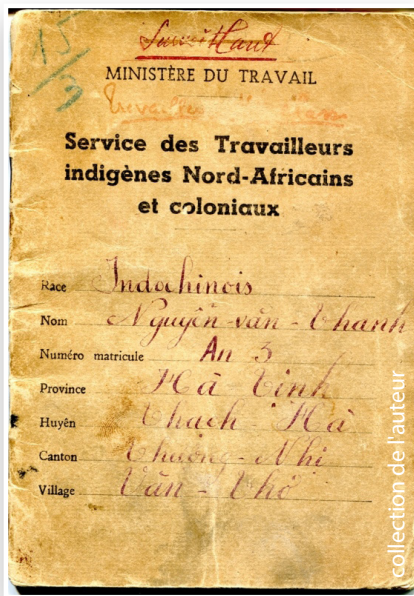 Surveillant
MINISTÈRE DU TRAVAIL
Service des Travailleurs
indigènes Nord-Africains
et coloniaux
Race Indochinois
Nom Nguyên-văn-Thanh
Numéro matricule An 3
Province Hà Tinh
Huyên Thach-Hà
Canton Thuong-Nhi
Village Văn-Thô
collection de l'auteur